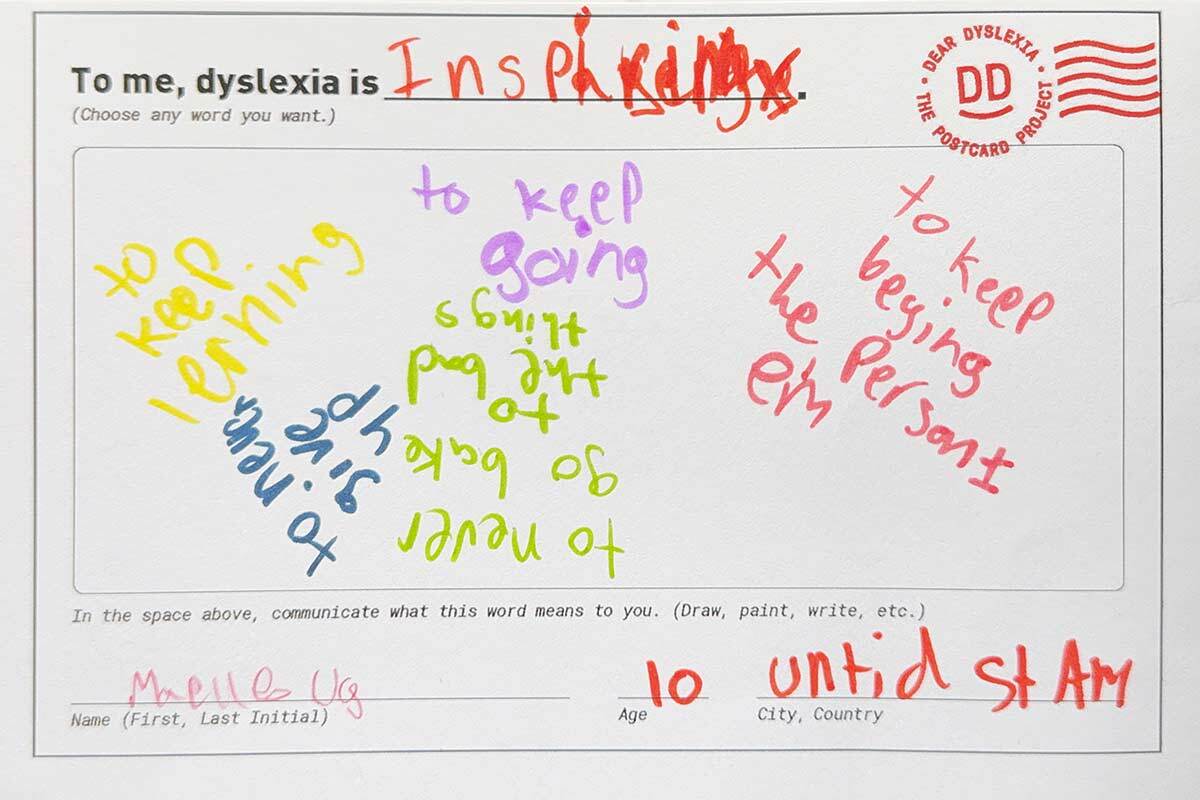 To me, dyslexia is Inspiring.
(Choose any word you want.)
DEAR DYSLEXIA
DD
THE POSTCARD PROJECT
to keep
going
to
keep
lerning
to never
give
up
to never
go bake
to
the bad
things
to keep
beging
the Persant
eim
In the space above, communicate what this word means to you. (Draw, paint, write, etc.)
10
untid St AM
Name (First, Last Initial)
Age
City, Country